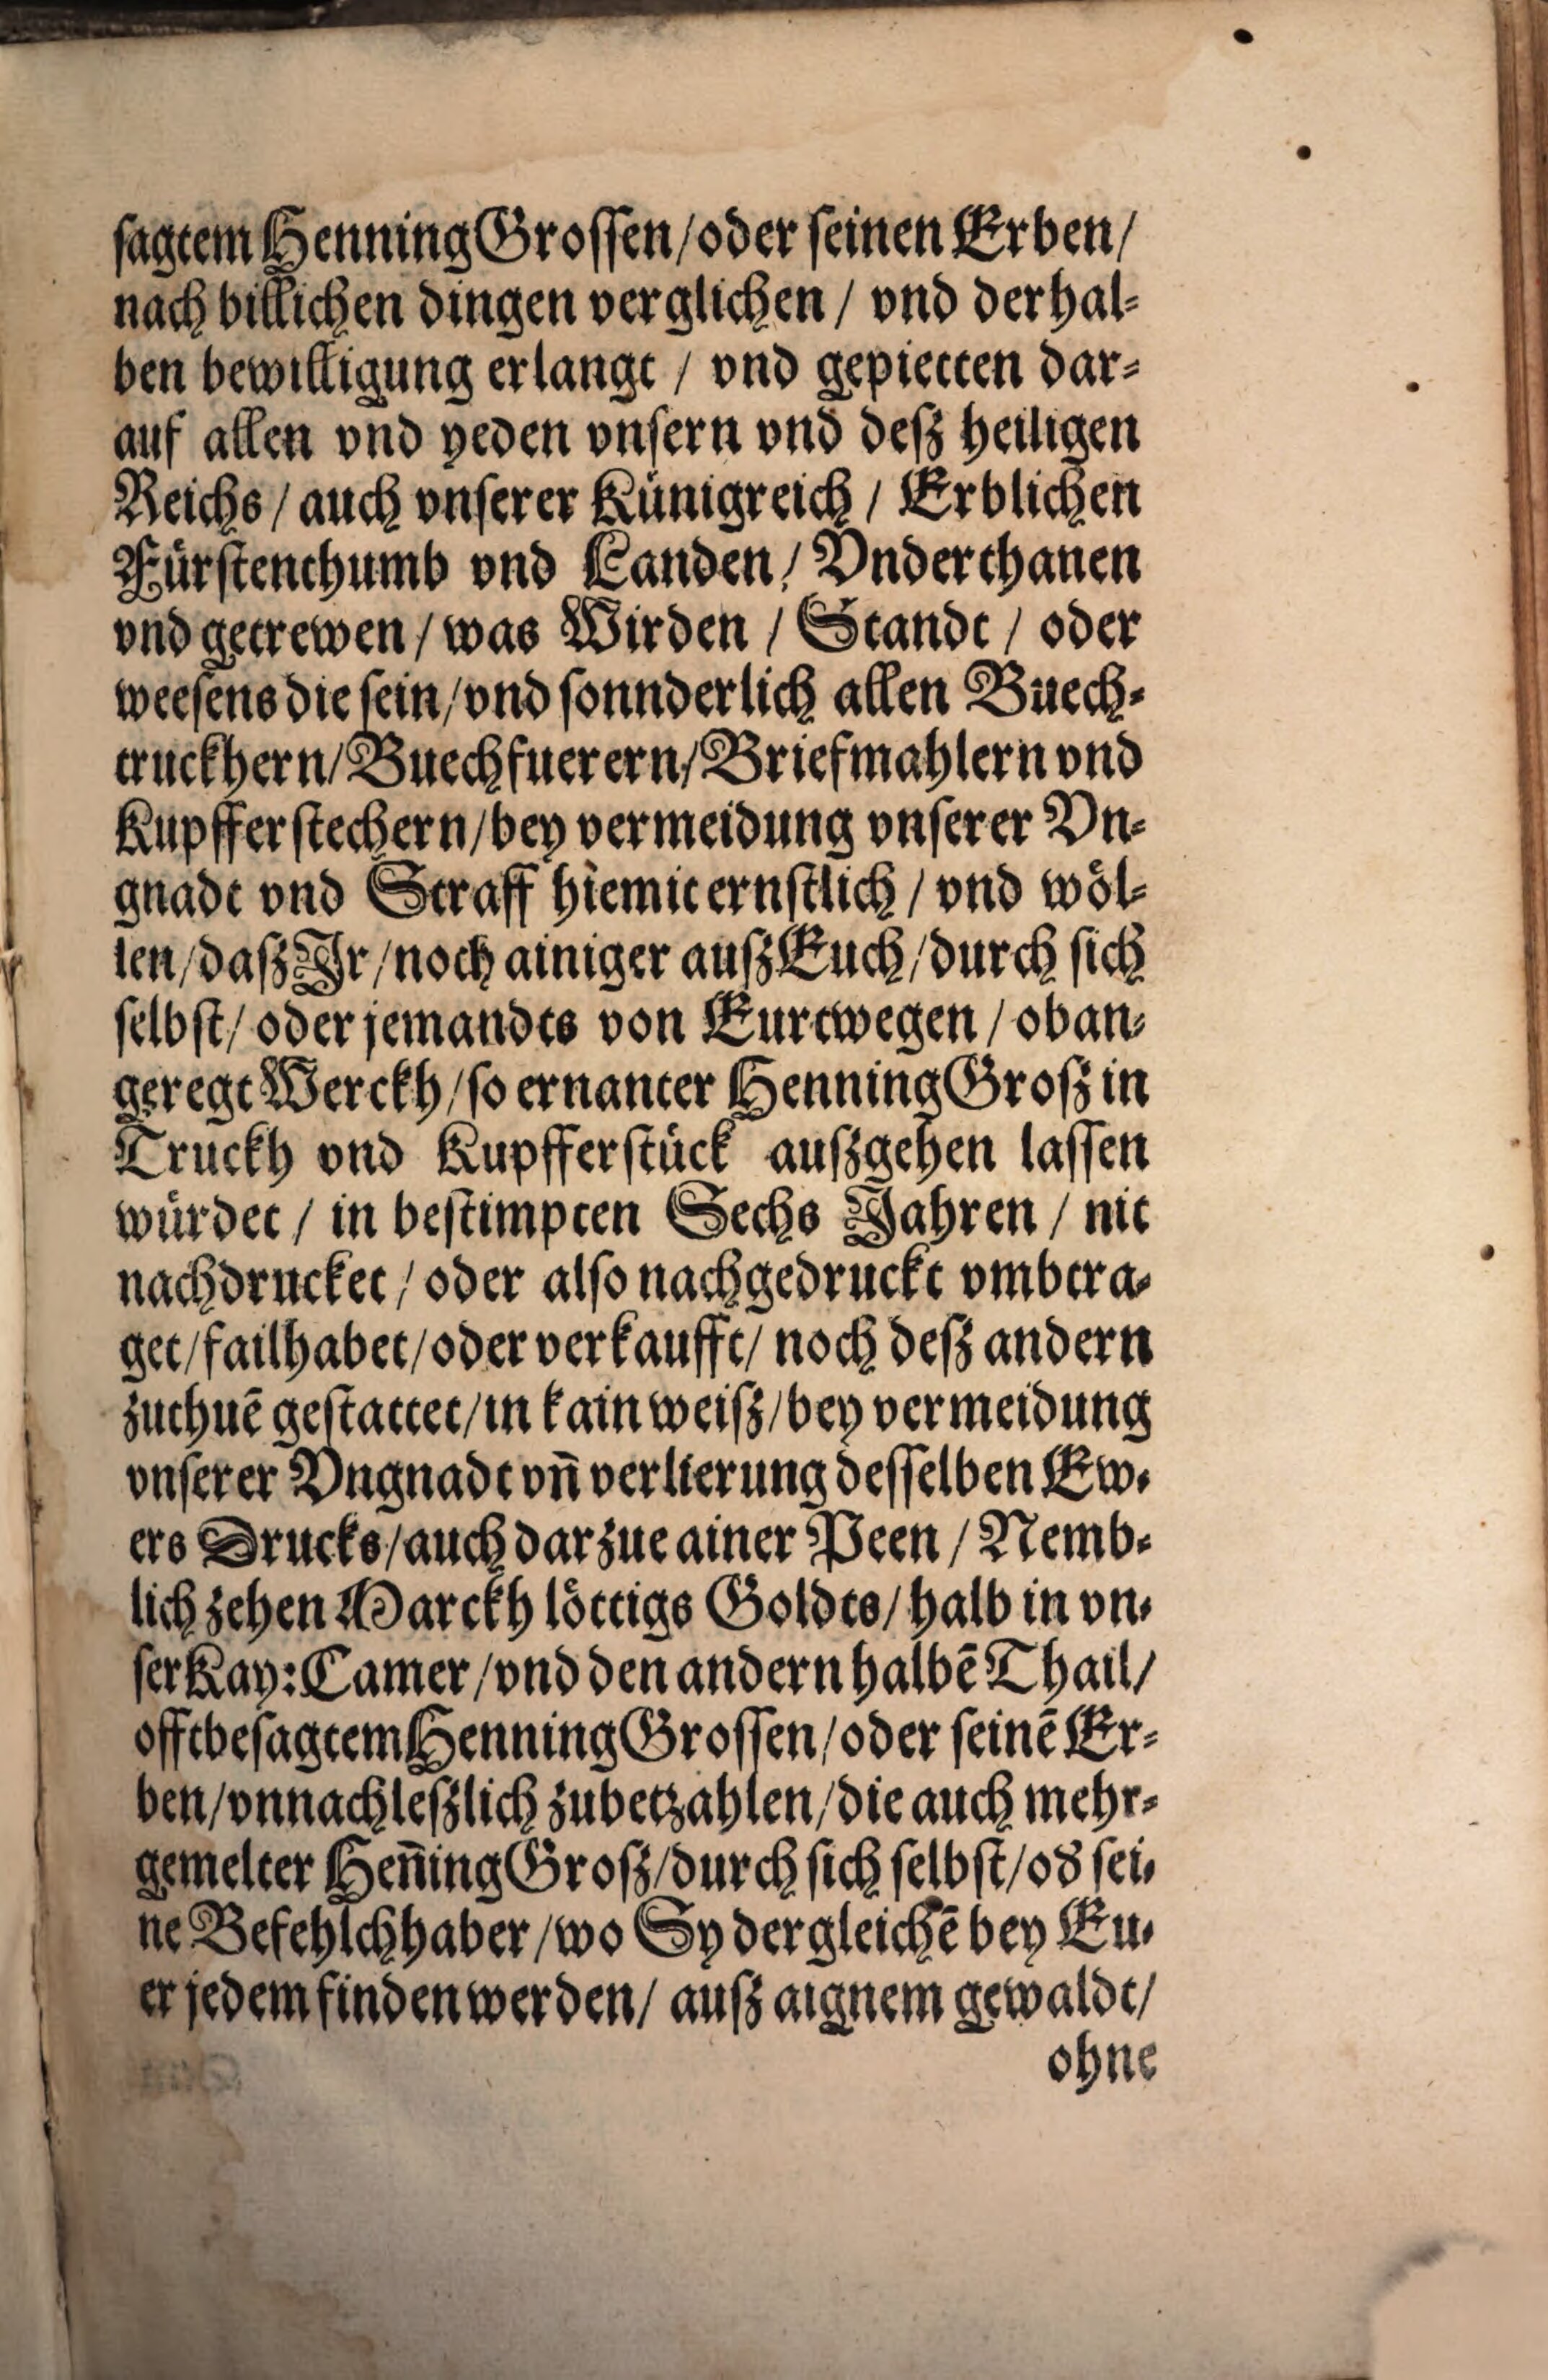 ſagtem Henning Groſſen / oder ſeinen Erben /
nach billichen dingen verglichen / vnd derhal⸗
ben bewilligung erlangt / vnd gepietten dar⸗
auf allen vnd yeden vnſern vnd deſz heiligen
Reichs / auch vnſerer Künigreich / Erblichen
Fürſtenthumb vnd Landen / Vnderthanen
vnd getrewen / was Wirden / Standt / oder
weeſens die ſein / vnd ſonnderlich allen Buech⸗
truckhern / Buechfuerern / Briefmahlern vnd
Kupfferſtechern / bey vermeidung vnſerer Vn⸗
gnadt vnd Straff hiemit ernſtlich / vnd wöl⸗
len / daſz Jr / noch ainiger auſz Euch / durch ſich
ſelbſt / oder jemandts von Eurtwegen / oban⸗
geregt Werckh / ſo ernanter Henning Groſz in
Truckh vnd Kupfferſtück auſzgehen laſſen
würdet / in beſtimpten Sechs Jahren / nit
nachdrucket / oder alſo nachgedruckt vmbtra⸗
get / failhabet / oder verkaufft / noch deſz andern
zuthuē geſtattet / in kain weiſz / bey vermeidung
vnſerer Vngnadt vn̄ verlierung deſſelben Ew⸗
ers Drucks / auch darzue ainer Peen / Nemb⸗
lich zehen Marckh löttigs Goldts / halb in vn⸗
ſer Kay: Camer / vnd den andern halbē Thail /
offtbeſagtem Henning Groſſen / oder ſeinē Er⸗
ben / vnnachleſzlich zubetzahlen / die auch mehr⸗
gemelter Hen̄ing Groſz / durch ſich ſelbſt / od̕ ſei⸗
ne Befehlchhaber / wo Sy dergleichē bey Eu⸗
er jedem finden werden / auſz aignem gewaldt /
ohne